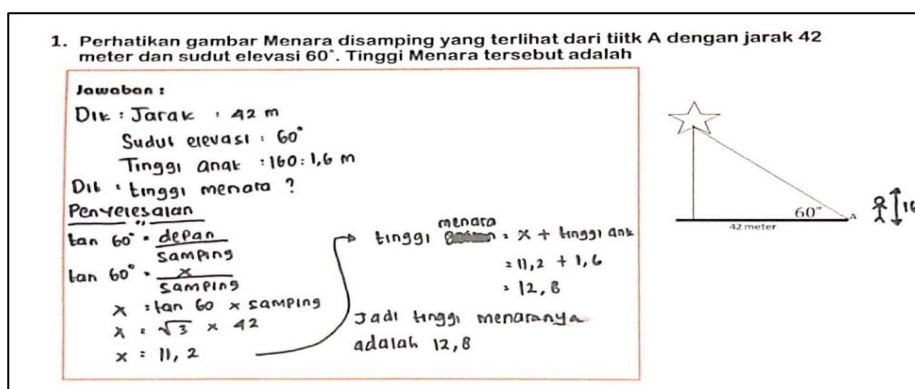 1. Perhatikan gambar Menara disamping yang terlihat dari tiitk A dengan jarak 42
meter dan sudut elevasi 60°. Tinggi Menara tersebut adalah
Jawaban :
Dik : Jarak : 42 m
Sudut elevasi : 60°
Tinggi anak : 160 : 1,6 m
Dit : tinggi menara ?
Penyelesaian
tan 60° = depan
samping
tan 60° = x
samping
x = tan 60 x samping
x = √3 x 42
x = 11,2
menara
tinggi = x + tinggi ank
= 11,2 + 1,6
= 12,8
Jadi tinggi menaranya
adalah 12,8
60°
A
42 meter